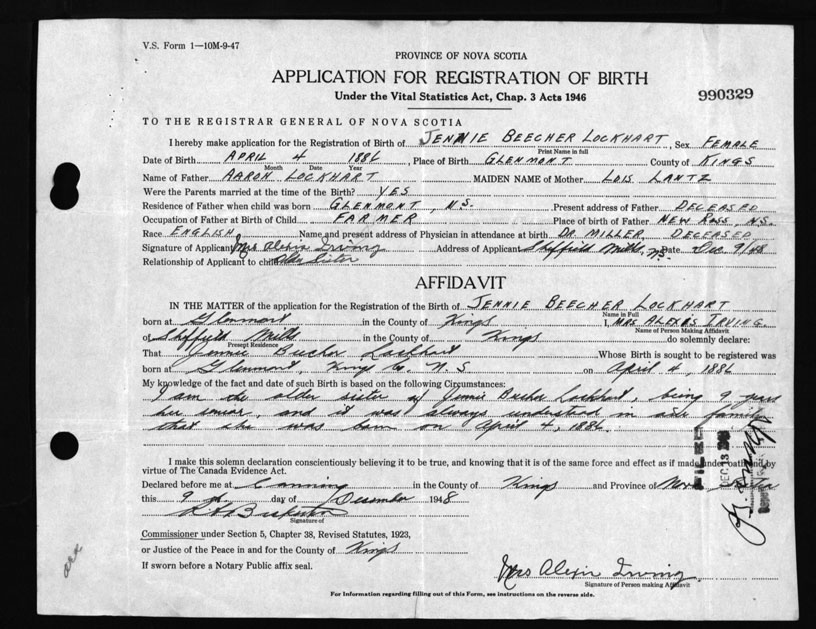 V.S. Form 1—10M-9-47
PROVINCE OF NOVA SCOTIA
APPLICATION FOR REGISTRATION OF BIRTH
Under the Vital Statistics Act, Chap. 3 Acts 1946
990329
TO THE REGISTRAR GENERAL OF NOVA SCOTIA
I hereby make application for the Registration of Birth of JENNIE BEECHER LOCKHART, Sex FEMALE
Print Name in full
Date of Birth APRIL 4 1886, Place of Birth GLENMONT County of KINGS
Month Date Year
Name of Father AARON LOCKHART MAIDEN NAME of Mother LOIS LANTZ
Were the Parents married at the time of the Birth? YES
Residence of Father when child was born GLENMONT, N.S. Present address of Father DECEASED
Occupation of Father at Birth of Child FARMER Place of birth of Father NEW ROSS, N.S.
Race ENGLISH Name and present address of Physician in attendance at birth DR. MILLER, DECEASED
Signature of Applicant Mrs Irving Address of Applicant Sheffield Mills, N.S. Date Dec 9/48
Relationship of Applicant to child Older Sister
AFFIDAVIT
IN THE MATTER of the application for the Registration of the Birth of JENNIE BEECHER LOCKHART
Name in Full
born at Glenmont in the County of Kings I, MRS IRVING.
Name of Person Making Affidavit
of Sheffield Mills in the County of Kings do solemnly declare:
Present Residence
That Jennie Beecher Lockhart Whose Birth is sought to be registered was
born at Glenmont, Kings Co. N. S on April 4, 1886
My knowledge of the fact and date of such Birth is based on the following Circumstances:
I am the older sister of Jennie Beecher Lockhart, being 9 years
her senior, and it was always understood in our family
that she was born on April 4, 1886.
I make this solemn declaration conscientiously believing it to be true, and knowing that it is of the same force and effect as if made under oath and by
virtue of The Canada Evidence Act.
Declared before me at Canning in the County of Kings and Province of Nova Scotia
this 9th day of December 1948
Signature of
Commissioner under Section 5, Chapter 38, Revised Statutes, 1923,
or Justice of the Peace in and for the County of Kings
If sworn before a Notary Public affix seal.
Mrs Irving
Signature of Person making Affidavit
For Information regarding filling out of this Form, see instructions on the reverse side.
FILED
DEC 13